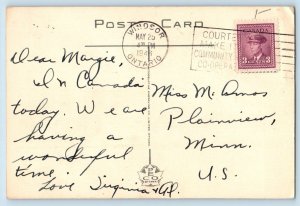 POST CARD
WINDSOR
MAY 29
PM
1946
ONTARIO
COURTE
MAKE
COMMUNITY
CO-OPERA
CANADA
3 3
Dear Margie,
In Canada
today. We are
having a
wonderful
time.
Love Virginia & Al.
Miss M. Amos
Plainview,
Minn.
U.S.